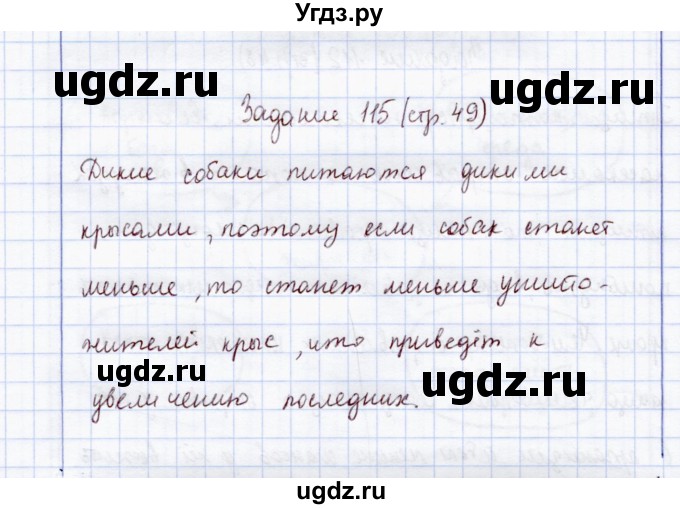 Угдз.ру
ugdz.ru
ugdz.ru
Задание 115 (стр. 49)
Дикие собаки питаются дикими
крысами, поэтому если собак станет
меньше, то станет меньше уничто-
жителей крыс, что приведёт к
ugdz.ru
ugdz.ru
увеличению последних.
ugdz.ru